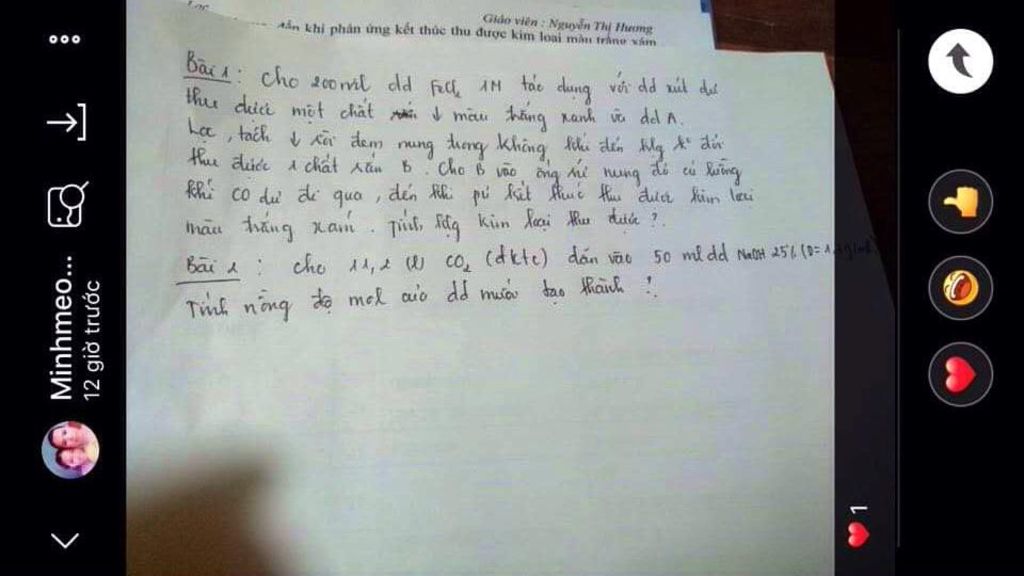 Giáo viên : Nguyễn Thị Hương
dẫn khí phản ứng kết thúc thu được kim loại màu trắng xám
Bài 1 : Cho 200ml dd FeCl2 1M tác dụng với dd xút dư
thu được một chất ↓ màu trắng xanh và dd A.
Lọc, tách ↓ rồi đem nung trong không khí đến klg k° đổi
thu được 1 chất rắn B. Cho B vào ống sứ nung đỏ có luồng
khí CO dư đi qua, đến khi pứ kết thúc thu được kim loại
màu trắng xám. Tính klg kim loại thu được ?.
Bài 2 : cho 11,2 (l) CO2 (đktc) dẫn vào 50 ml dd NaOH 25% (D=
Tính nồng độ mol của dd muối tạo thành ?.
Minhmeo...
12 giờ trước
1